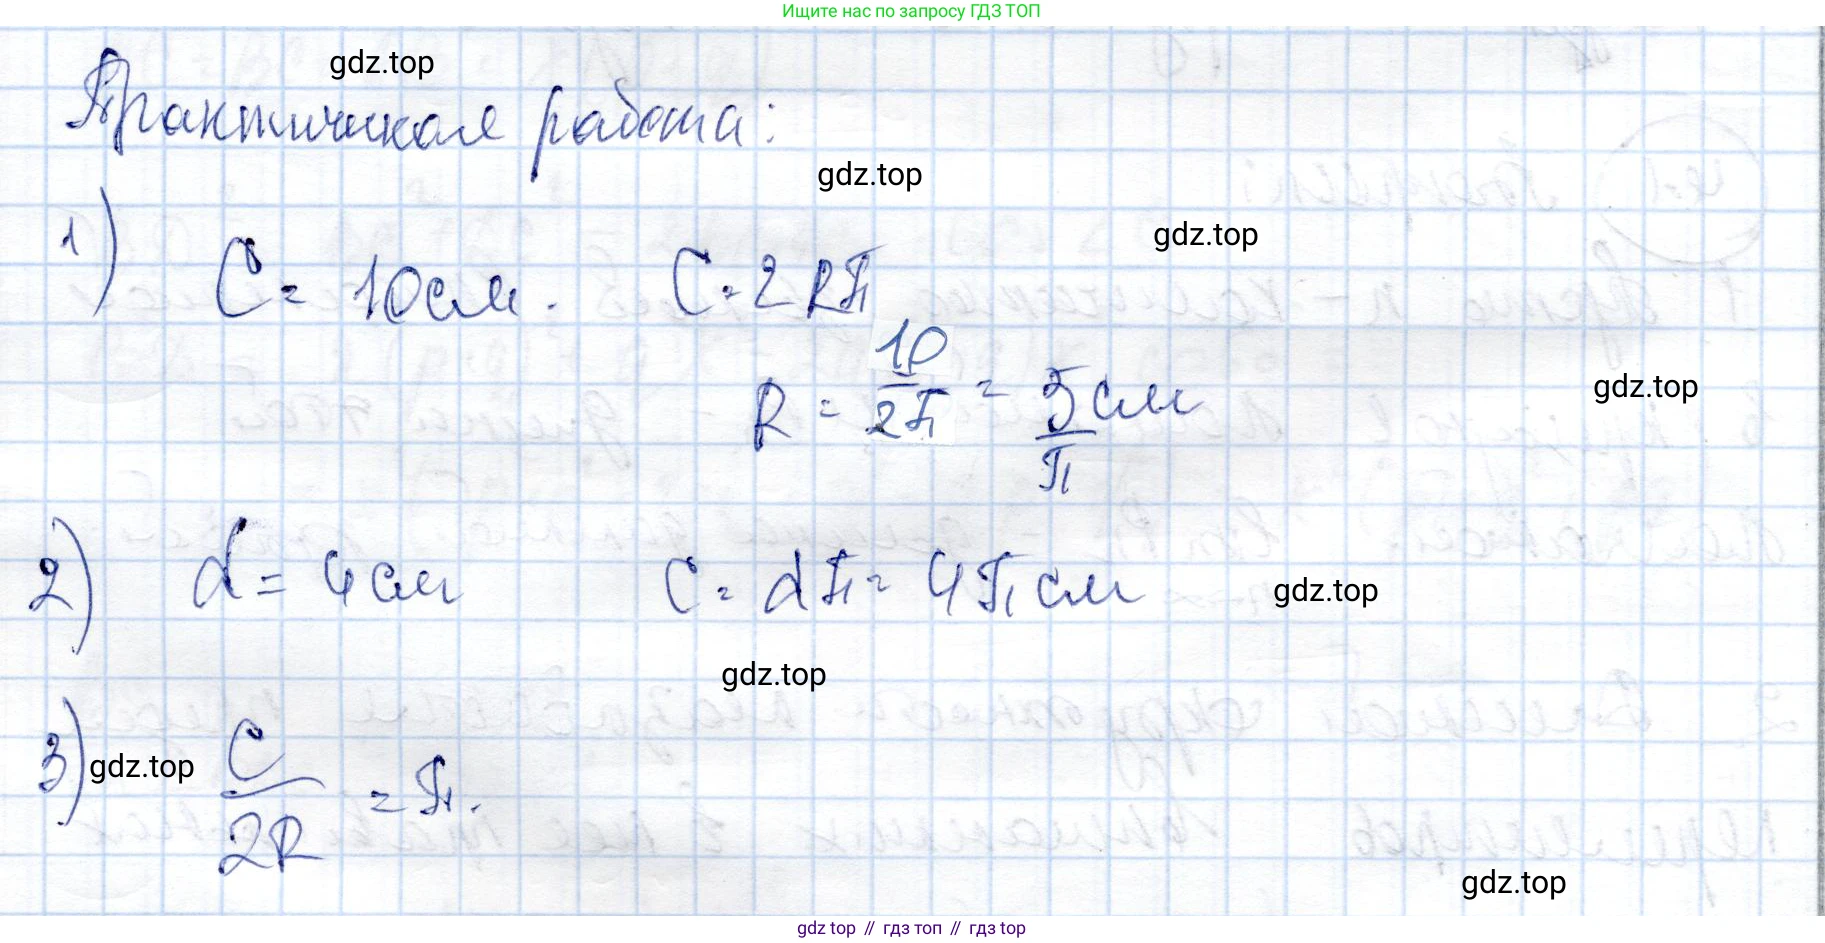 Ищите нас по запросу ГДЗ ТОП
gdz.top
Практическая работа:
gdz.top
gdz.top
1) C = 10 см. C = 2Rπ
R = 10/2π = 5/π см
gdz.top
2) d = 4 см C = dπ = 4π см
gdz.top
gdz.top
3) C/2R = π.
gdz.top
gdz.top
gdz top // гдз топ // гдз top